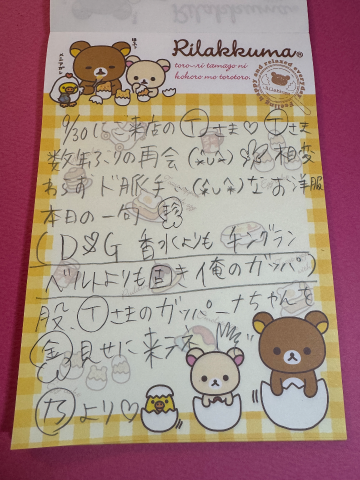 Rilakkuma®
toro~ri tamago ni
kokoro mo torotoro.
RILAKKUMA
9/30にご来店のⓉさま♡Ⓣさま
数年ぶりの再会(*∪*)相変
わらずド派手…(*∪*)なお洋服
本日の一句
(D&G 香水よりも キングラン
ベルトよりも 固き 俺のガッパ)
股、Ⓣさまのガッパーナちゃんを
見せに来てネ
より♡